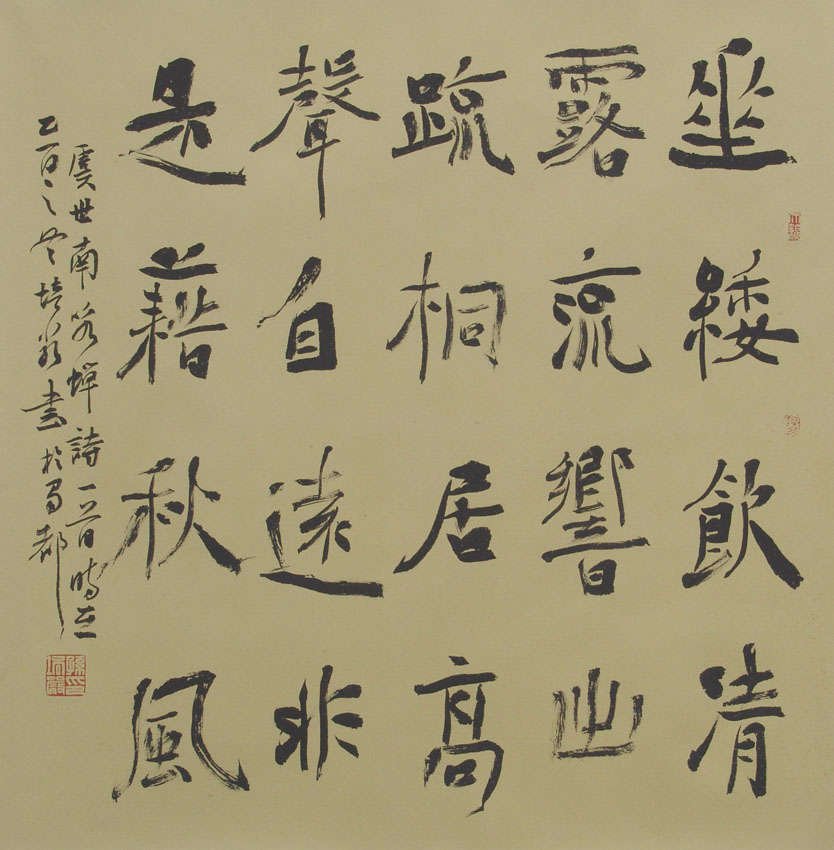 垂緌飲清
露流響出
疏桐居高
聲自遠非
是藉秋風
虞世南咏蟬詩一首時在
乙酉之冬培嚴書於蜀都